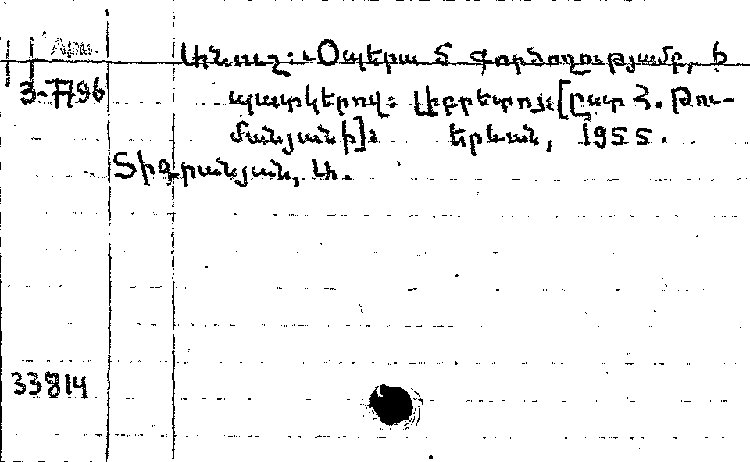 Անուշ։ Օպերա 5 գործողությամբ, 6
պատկերով։ Լիբրետոյա [ըստ Հ. Թու-
մանյանի]։ Երևան, 1955.
Տիգրանյան, Ա.
33814